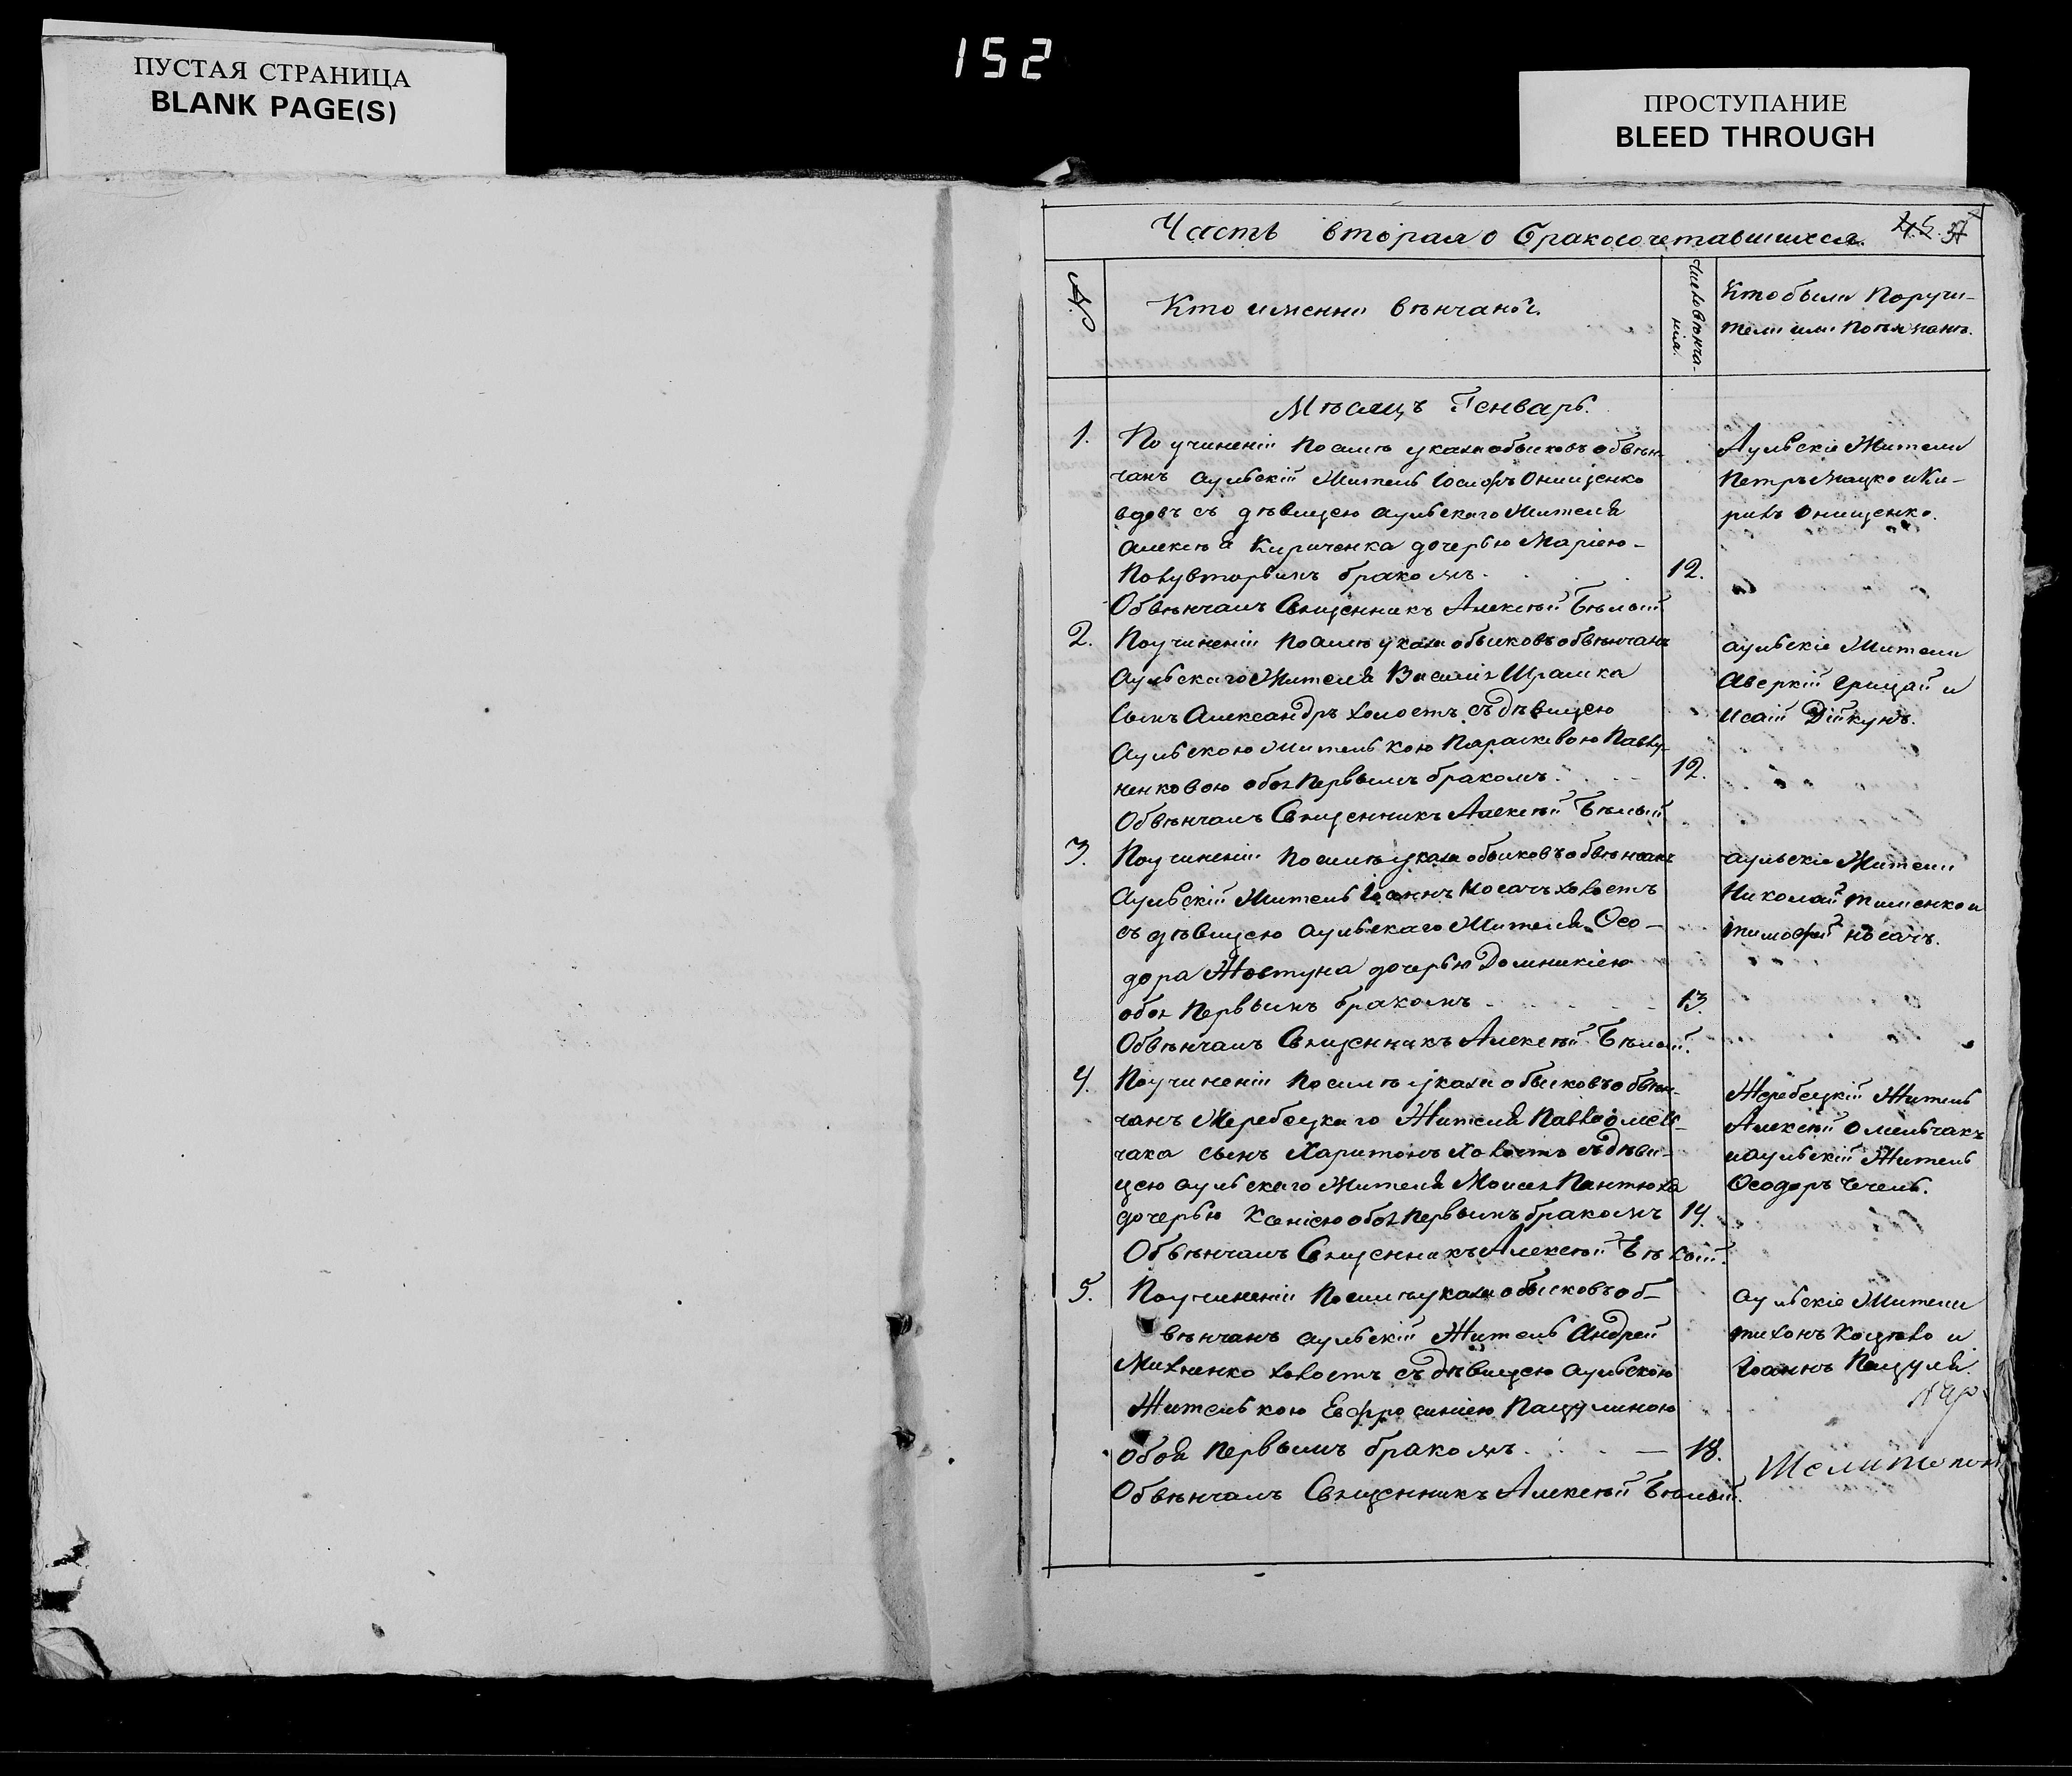 ПУСТАЯ СТРАНИЦА
BLANK PAGE(S)
152
ПРОСТУПАНИЕ
BLEED THROUGH
Часть вторая о бракосочетавшихся.
№
Кто именни вѣнчаны.
Число вѣнча-
нія.
Кто были Поручи-
тели или поезжанѣ.
Мѣсяцъ Генварь.
1. По учиненіи по силѣ указа обысковъ обвѣн-
чанъ аульскій Житель Іосифъ Онищенко
вдовъ съ дѣвицею аульскаго Жителя
алексѣя Кириченка дочерью Маріею
Полувторымъ бракомъ. 12.
Обвѣнчалъ Священникъ Алексѣй Бѣлый
Аульскіе Жители
Петръ Мацко и Ки-
рилъ Онищенко.
2. По учиненіи по силѣ указа обысковъ обвѣнчанъ
Аульскаго Жителя Василія Шрамка
Сынъ Александръ холостъ съ дѣвицею
Аульскою Жителькою Параскевою Павлу-
ненковою обоя первымъ бракомъ. 12.
Обвѣнчалъ Священникъ Алексѣй Бѣлый
аульскіе Жители
Аверкій Грицай и
Исаій Дійкунъ.
3. По учиненіи по силѣ указа обысковъ обвѣнчанъ
Аульскій Житель Іоаннъ Носачъ холостъ
съ дѣвицею аульскаго Жителя Ѳео-
дора Жовтуна дочерью Домникіею
обоя первымъ бракомъ 13.
Обвѣнчалъ Священникъ Алексѣй Бѣлый.
аульскіе Жители
Николай тименко и
тимофей носачъ.
4. По учиненіи по силѣ указа обысковъ обвѣн-
чанъ Жеребецкаго Жителя Павла омель-
чака сынъ Харитонъ Холостъ съ дѣви-
цею аульскаго Жителя Моисея Пантюха
дочерью Ксеніею обоя первымъ бракомъ 14.
Обвѣнчалъ Священникъ Алексѣй Бѣлый.
Жеребецкій Житель
Алексѣй Омельчакъ
и аульскій Житель
Ѳеодоръ Чечель.
5. По учиненіи по силѣ указа обысковъ об-
вѣнчанъ аульскій Житель Андрей
Михненко холостъ съ дѣвицею аульскою
Жителькою Евфросиніею Пацулиною
обоя первымъ бракомъ. 18.
Обвѣнчалъ Священникъ Алексѣй Бѣлый.
аульскіе Жители
тихонъ Коцюба и
Іоаннъ Пацуля.